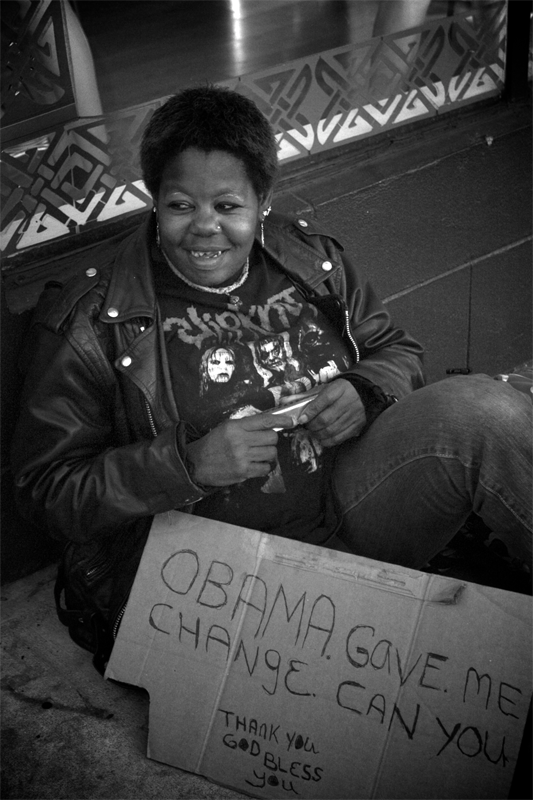 SLIPKNOT
OBAMA. GAVE. ME
CHANgE. CAN YOU
THANK YOU
GOD BLESS
YOU